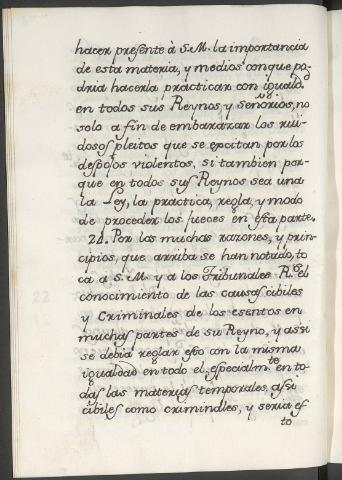 hacer presente à S.M. la importancia
de esta materia, y medios con que po-
dria hacerla practicar con iguald.d
en todos sus Reynos y Señorios, no
solo a fin de embarazar los rui-
dosos pleitos que se excitan por los
despojos violentos, si tambien por-
que en todos sus Reynos sea una
la Ley, la practica, regla, y modo
de proceder los jueces en esta parte.
22. Por las muchas razones, y prin-
cipios, que arriba se han notado, to
ca a S.M. y a los Tribunales R.s el
conocimiento de las causas cibiles
y Criminales de los esentos en
muchas partes de su Reyno, y assi
se debia reglar esto con la misma
igualdad en todo el, especialm.te en to-
das las materias temporales, assi
cibiles como criminales, y seria es
to